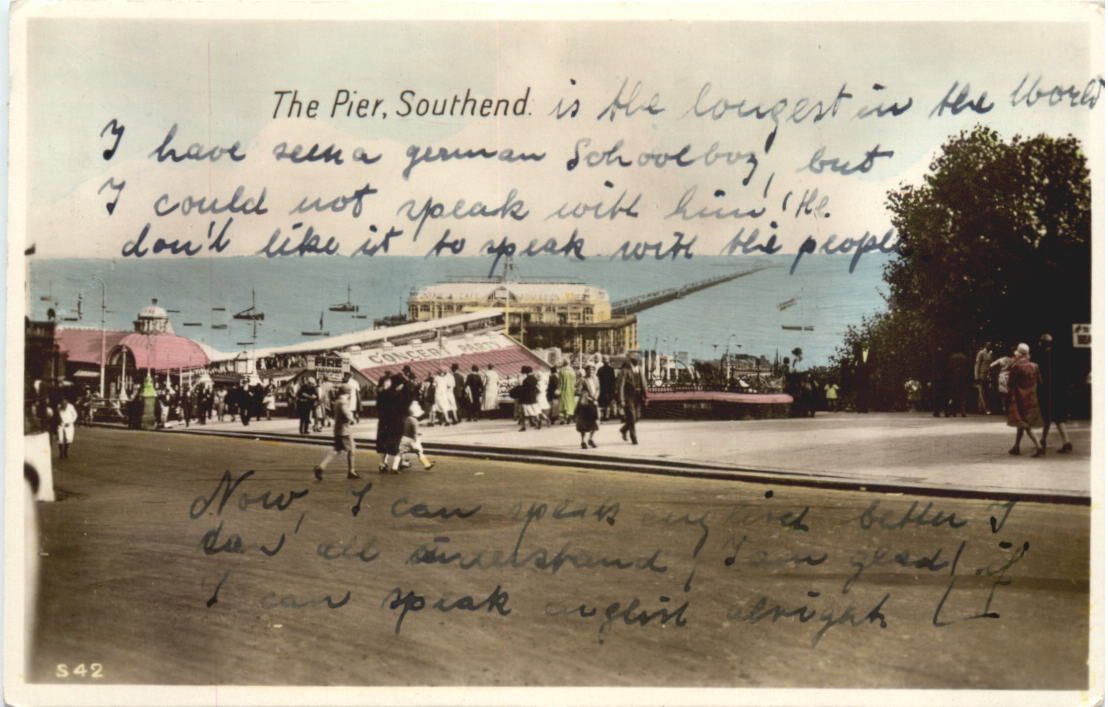 The Pier, Southend. is the longest in the World
I have seen a german Schoolboy, but
I could not speak with him! He
don't like it to speak with the people
CONCERT PARTY
Now, I can speak english better I
can all understand! I am glad! if
I can speak english alright!
S42